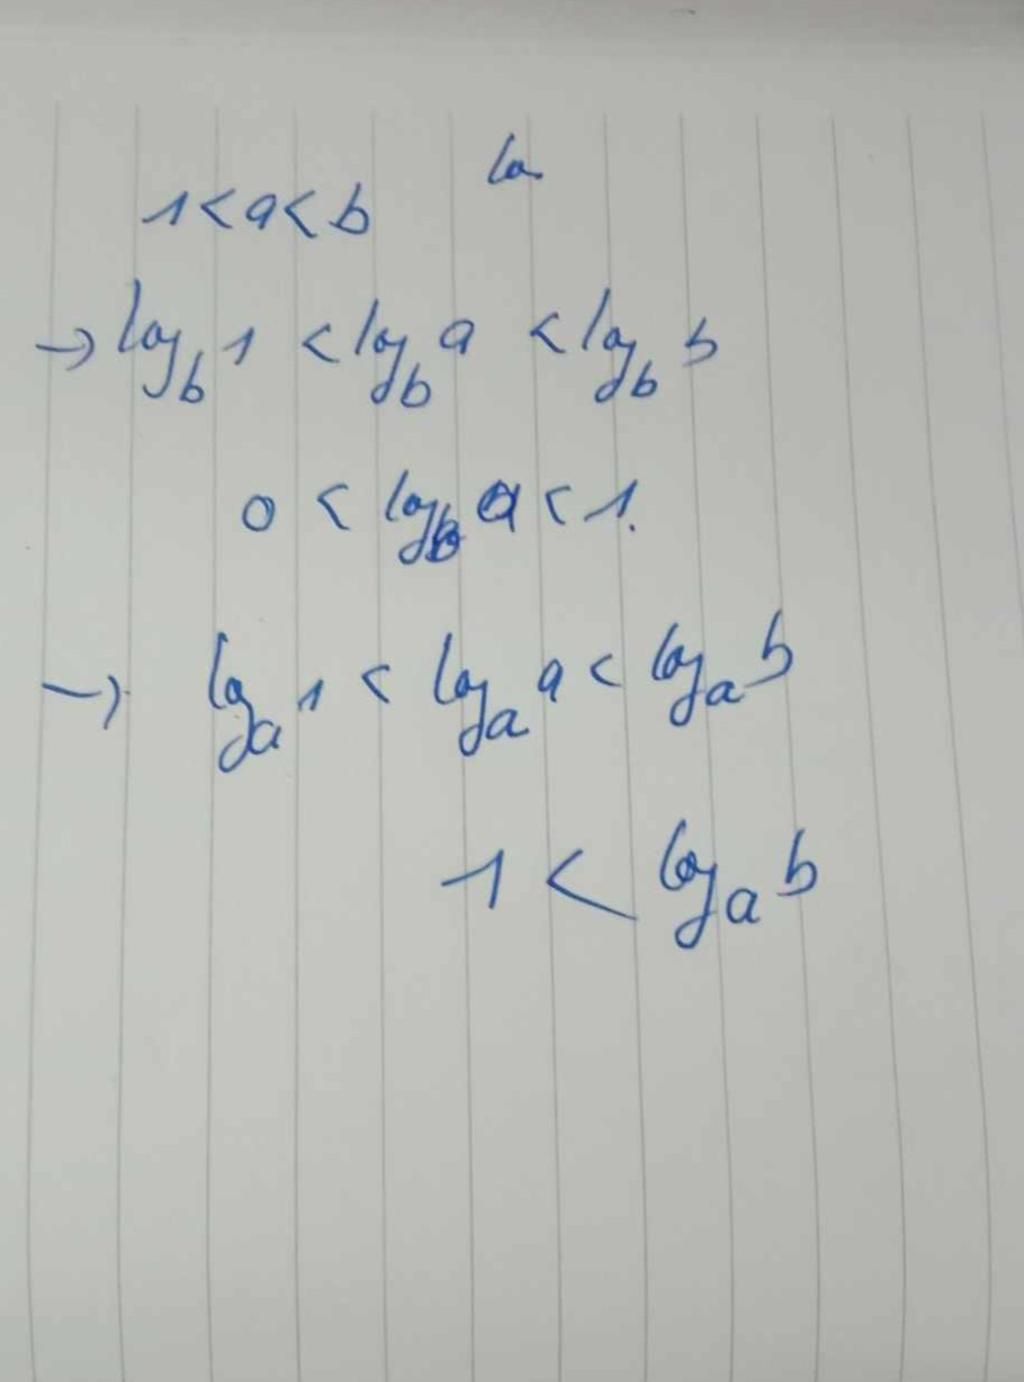 lo
1 < a < b
→ log_b 1 < log_b a < log_b b
0 < log_b a < 1.
→ log_a 1 < log_a a < log_a b
1 < log_a b